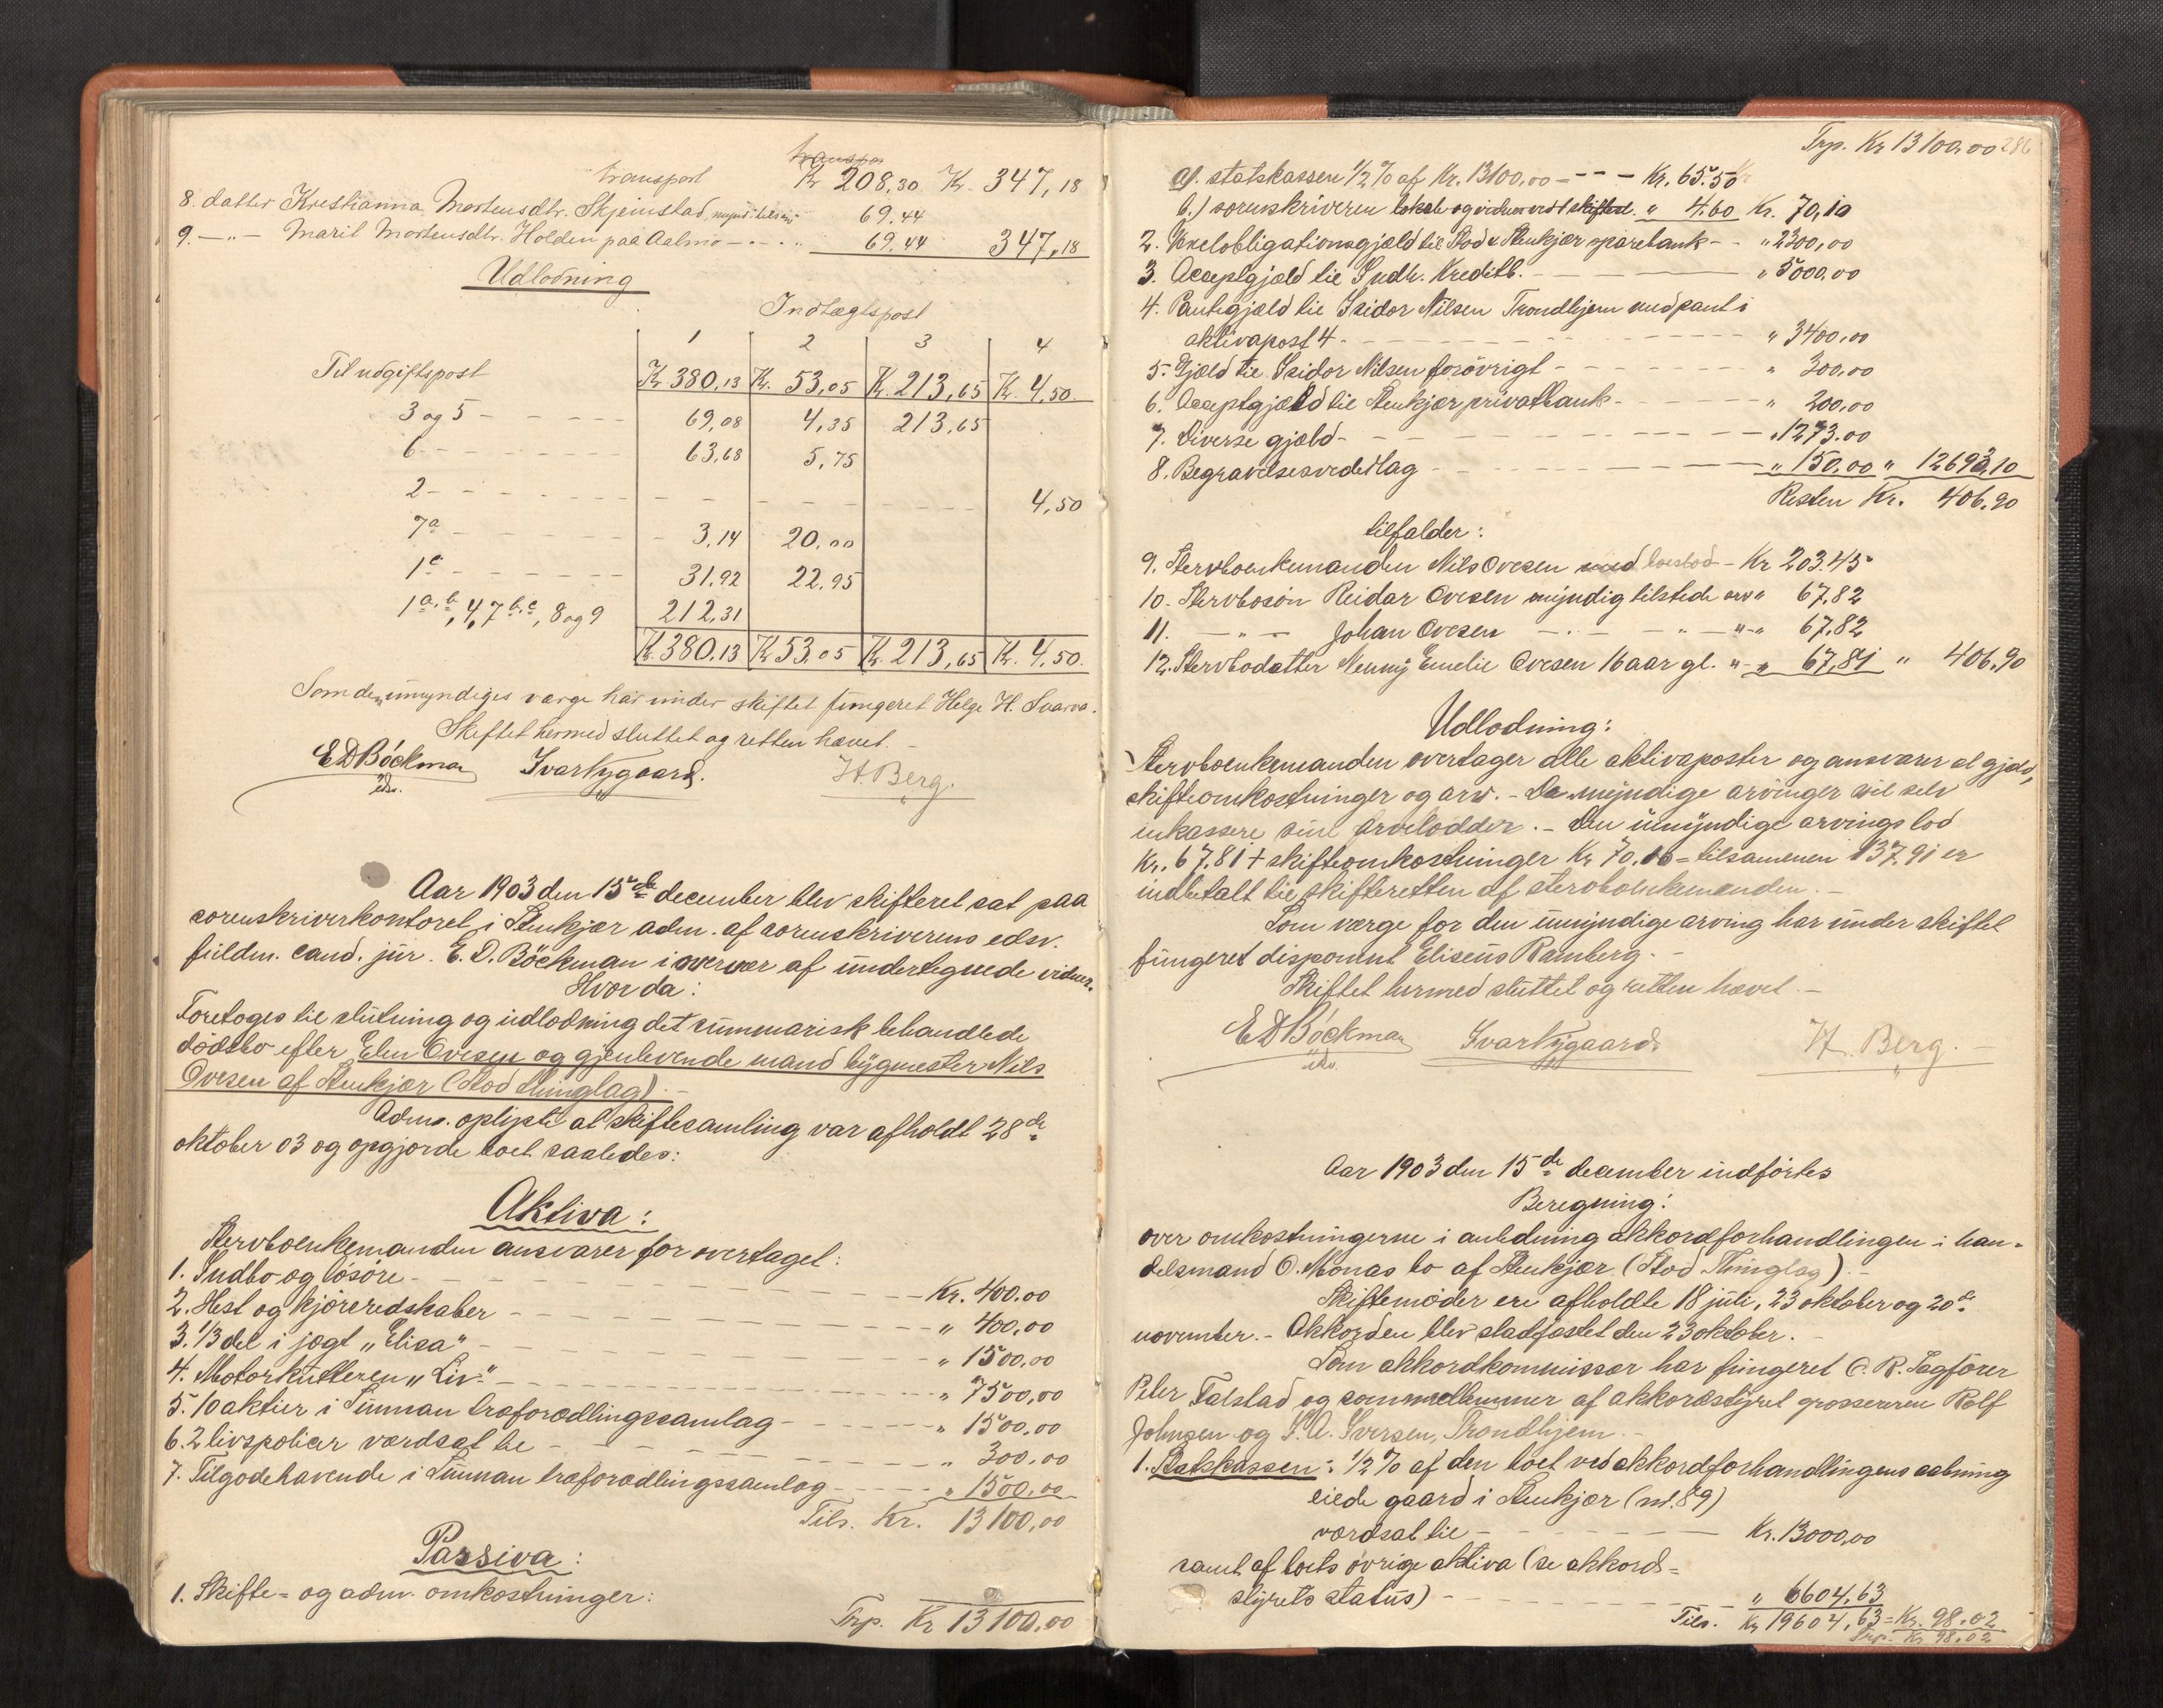 transport Kr 208,30 Kr. 347,18
8. datter Kristianna Mortensdtr. Skjeinstad, mynd. tilst. 69.44
9. —"— Marit Mortensdtr. Holden paa Aalmo — " 69.44 347,18
Udlodning
Indtægtspost
1 2 3 4
Til udgiftspost Kr 380,13 Kr. 53,05 Kr. 213,65 Kr. 4,50
3 og 5 - - - 69,08 4,35 213,65
6 - - - 63,68 5,75
2 - - - 4,50
7a - - - 3,14 20,00
1c - - - 31,92 22,95
1a,b, 4, 7b,c, 8 og 9 212,31
Kr. 380,13 Kr 53,05 Kr. 213,65 Kr. 4,50.
Som de umyndiges værge har under skiftet fungeret Helge H. Svarva.
Skiftet hermed sluttet og retten hævet. -
E D Böckman Ivar Nygaard. H. Berg.
edsv.
Aar 1903 den 15de december blev skifteret sat paa
sorenskriverkontoret i Stenkjær adm. af sorenskriverens edsv.
fuldm. cand. jur. E. D. Böckman i overvær af undertegnede vidner.
Hvor da:
Foretoges til slutning og udlodning det summarisk behandlede
dödsbo efter Elen Ovesen og gjenlevende mand bygmester Nils
Ovesen af Stenkjær (Stod thinglag). -
Adm. oplyste at skiftesamling var afholdt 28de
oktober 03 og opgjorde boet saaledes:
Aktiva:
Stervboenkemanden ansvarer for overtaget:
1. Indbo og lösöre - - - Kr. 400.00
2. Hest og kjöreredskaber - - - " 400,00
3. 1/3 del i jagt „Elisa" - - - " 1500,00
4. Motorkutteren „Liv" - - - " 7500,00
5. 10 aktier i Sunnan træforædlingssamlag - - - " 1500,00
6. 2 livspolicer værdsat til - - - " 300,00
7. Tilgodehavende i Sunnan træforædlingssamlag - - - " 1500,00
Tils. Kr. 13100,00
Passiva:
1. Skifte- og adm. omkostninger:
Trp. Kr 13100,00
Trp. Kr 13100,00 286
a). statskassen 1/2 % af Kr. 13100,00 = - - - Kr. 65.50
b.) sorenskriveren lokale og vidner ved skiftet. " 4.60 Kr. 70,10
2. Vexelobligationsgjæld til Stod & Stenkjær sparebank - - " 2300,00
3. Acceptgjæld til Indh. Kreditb. - - - " 5000,00
4. Pantegjæld til Isidor Nilsen Trondhjem med pant i
aktivapost 4 - - - " 3400,00
5. Gjæld til Isidor Nilsen forövrigt - - - " 300,00
6. Acceptgjæld til Stenkjær privatbank - - - " 200,00
7. Diverse gjæld - - - " 1273.00
8. Begravelsesvederlag - - - " 150,00 " 12693,10
Resten Kr. 406,90
tilfalder:
9. Stervboenkemanden Nils Ovesen boeslod - Kr 203.45
10. Stervbosön Reidar Ovesen myndig tilstede arv " 67,82
11. — " — Johan Ovesen — " — " — " 67,82
12. Stervbodatter Nenny Emelie Ovesen 16 aar gl. " - " 67,81 " 406,90
Udlodning:
Stervboenkemanden overtager alle aktivaposter og ansvarer al gjæld,
skifteomkostninger og arv. - De myndige arvinger vil selv
inkassere sine arvelodder. - Den umyndige arvings lod
Kr. 67,81 + skifteomkostninger Kr 70,10 = tilsammen 137,91 er
indbetalt til skifteretten af stervboenkemanden. -
Som værge for den umyndige arving har under skiftet
fungeret disponent Eliseus Ramberg. -
Skiftet hermed sluttet og retten hævet. -
E D Böckman Ivar Nygaard. H. Berg. -
edsv.
Aar 1903 den 15de december indförtes
Beregning:
over omkostningerne i anledning akkordforhandlingen i han-
delsmand O. Monas bo af Stenkjær (Stod Thinglag). -
Skiftemöder ere afholdte 18 juli, 23 oktober og 20de
november. - Akkorden blev stadfæstet den 23 oktober. -
Som akkordkommissær har fungeret O. R. Sagförer
Peter Falstad og som medlemmer af akkordstyret grossererne Rolf
Johnsen og J. A. Iversen, Trondhjem. -
1. Statskassen: 1/2 % af den boet ved akkordforhandlingens aabning
eiede gaard i Stenkjær (nr. 89)
værdsat til - - - Kr. 13000,00
samt af boets övrige aktiva (se akkord-
styrets status) - - - " 6604,63
Tils. Kr 19604,63 = Kr. 98.02
Trp. Kr 98.02